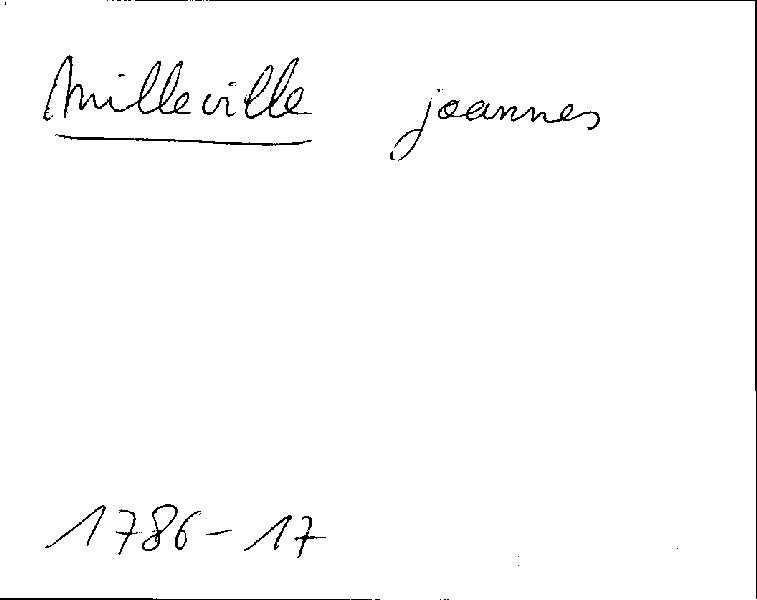 Milleville joannes
1786-17